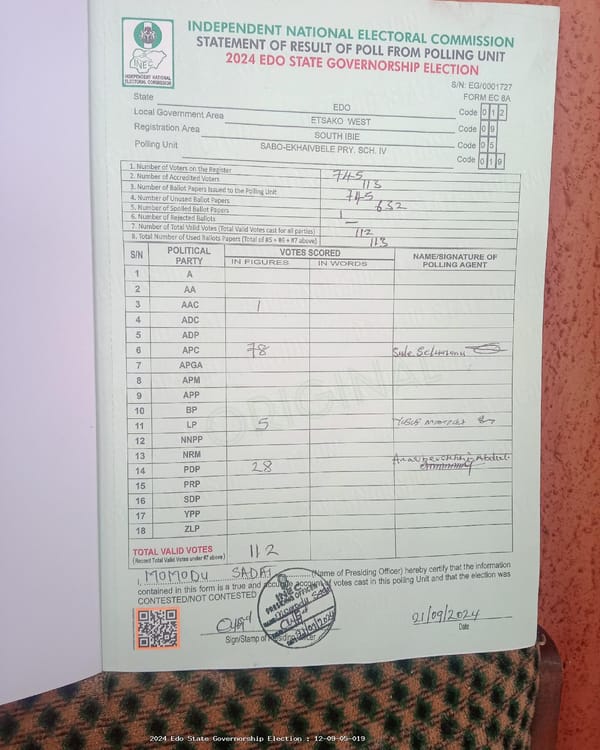 INDEPENDENT NATIONAL ELECTORAL COMMISSION
STATEMENT OF RESULT OF POLL FROM POLLING UNIT
2024 EDO STATE GOVERNORSHIP ELECTION
INEC
INDEPENDENT NATIONAL
ELECTORAL COMMISSION
S/N: EG/0001727
FORM EC 8A
State EDO Code 0 1 2
Local Government Area ETSAKO WEST Code 0 9
Registration Area SOUTH IBIE Code 0 5
Polling Unit SABO-EKHAIVBELE PRY. SCH. IV Code 0 1 9
1. Number of Voters on the Register 745
2. Number of Accredited Voters 113
3. Number of Ballot Papers Issued to the Polling Unit 745
4. Number of Unused Ballot Papers 632
5. Number of Spoiled Ballot Papers 1
6. Number of Rejected Ballots –
7. Number of Total Valid Votes (Total Valid Votes cast for all parties) 112
8. Total Number of Used Ballots Papers (Total of #5 + #6 + #7 above) 113
S/N POLITICAL PARTY VOTES SCORED NAME/SIGNATURE OF POLLING AGENT
IN FIGURES IN WORDS
1 A
2 AA
3 AAC 1
4 ADC
5 ADP
6 APC 78 Sule
7 APGA
8 APM
9 APP
10 BP
11 LP 5
12 NNPP
13 NRM
14 PDP 28
15 PRP
16 SDP
17 YPP
18 ZLP
ORIGINAL
TOTAL VALID VOTES 112
(Record Total Valid Votes under #7 above)
I, MOMODU SADAT (Name of Presiding Officer) hereby certify that the information
contained in this form is a true and accurate account of votes cast in this polling Unit and that the election was
CONTESTED/NOT CONTESTED
INEC
PRESIDING OFFICER
Momodu Sadat
21/09/2024
Sign/Stamp of Presiding Officer
21/09/2024
Date
2024 Edo State Governorship Election : 12-09-05-019